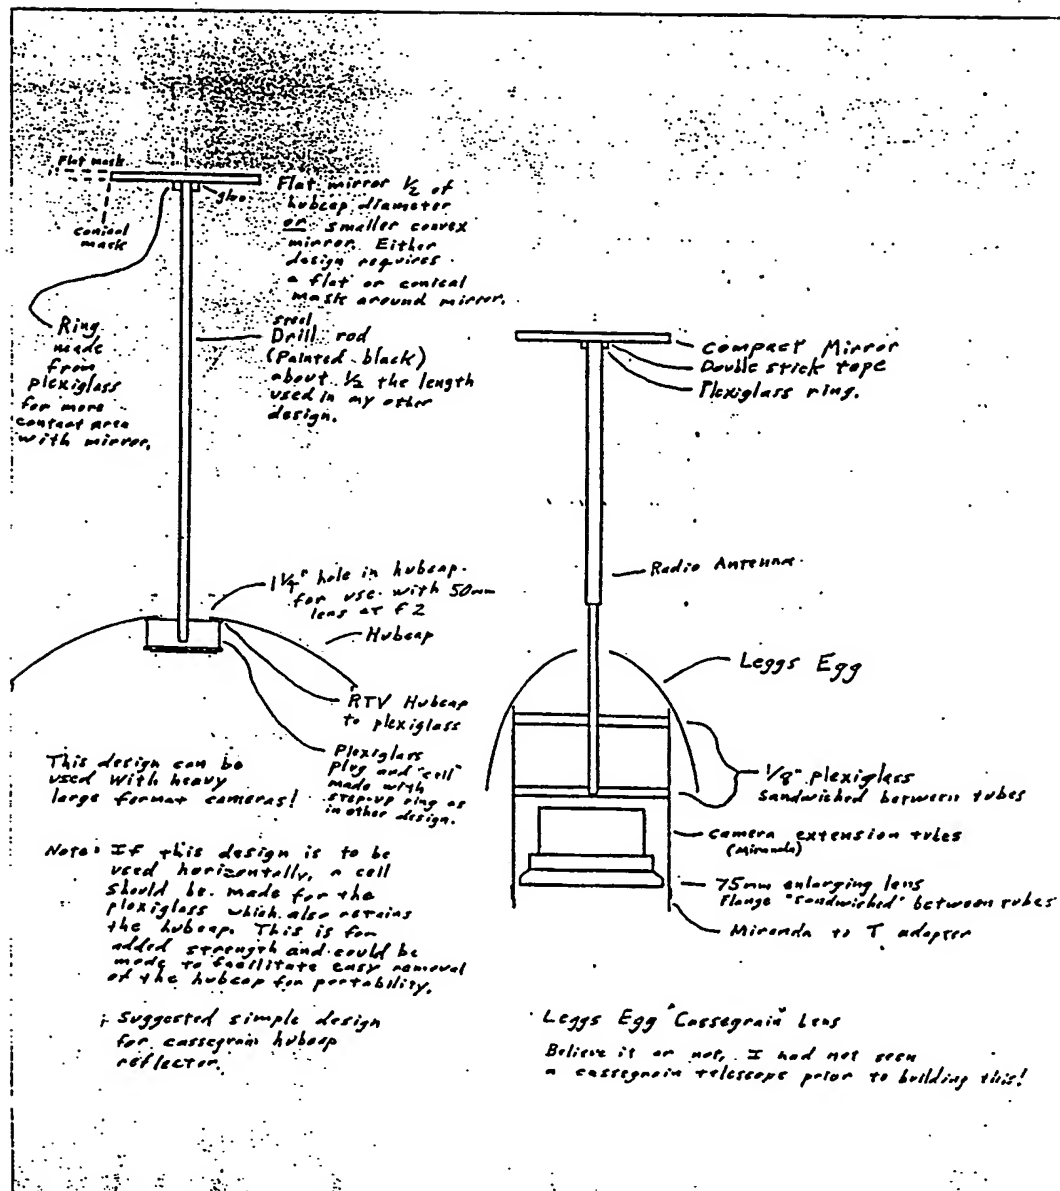 Flat mask
conical
mask
glue
Flat mirror 1/2 of
hubcap diameter
or smaller convex
mirror. Either
design requires
a flat or conical
mask around mirror.
Ring
made
from
plexiglass
for more
contact area
with mirror.
steel
Drill rod
(Painted black)
about 1/2 the length
used in my other
design.
1 1/4" hole in hubcap
for use with 50mm
lens at f2
Hubcap
RTV Hubcap
to plexiglass
Plexiglass
plug and "cell"
made with
step-up ring as
in other design.
This design can be
used with heavy
large format cameras!
Note: If this design is to be
used horizontally, a cell
should be made for the
plexiglass which also retains
the hubcap. This is for
added strength and could be
made to facilitate easy removal
of the hubcap for portability.
Suggested simple design
for cassegrain hubcap
reflector.
Compact Mirror
Double stick tape
Plexiglass ring.
Radio Antenna
Leggs Egg
1/8" plexiglass
Sandwiched between tubes
camera extension tubes
(Miranda)
75mm enlarging lens
Flange "sandwiched" between tubes
Miranda to T adapter
Leggs Egg "Cassegrain" Lens
Believe it or not, I had not seen
a cassegrain telescope prior to building this!